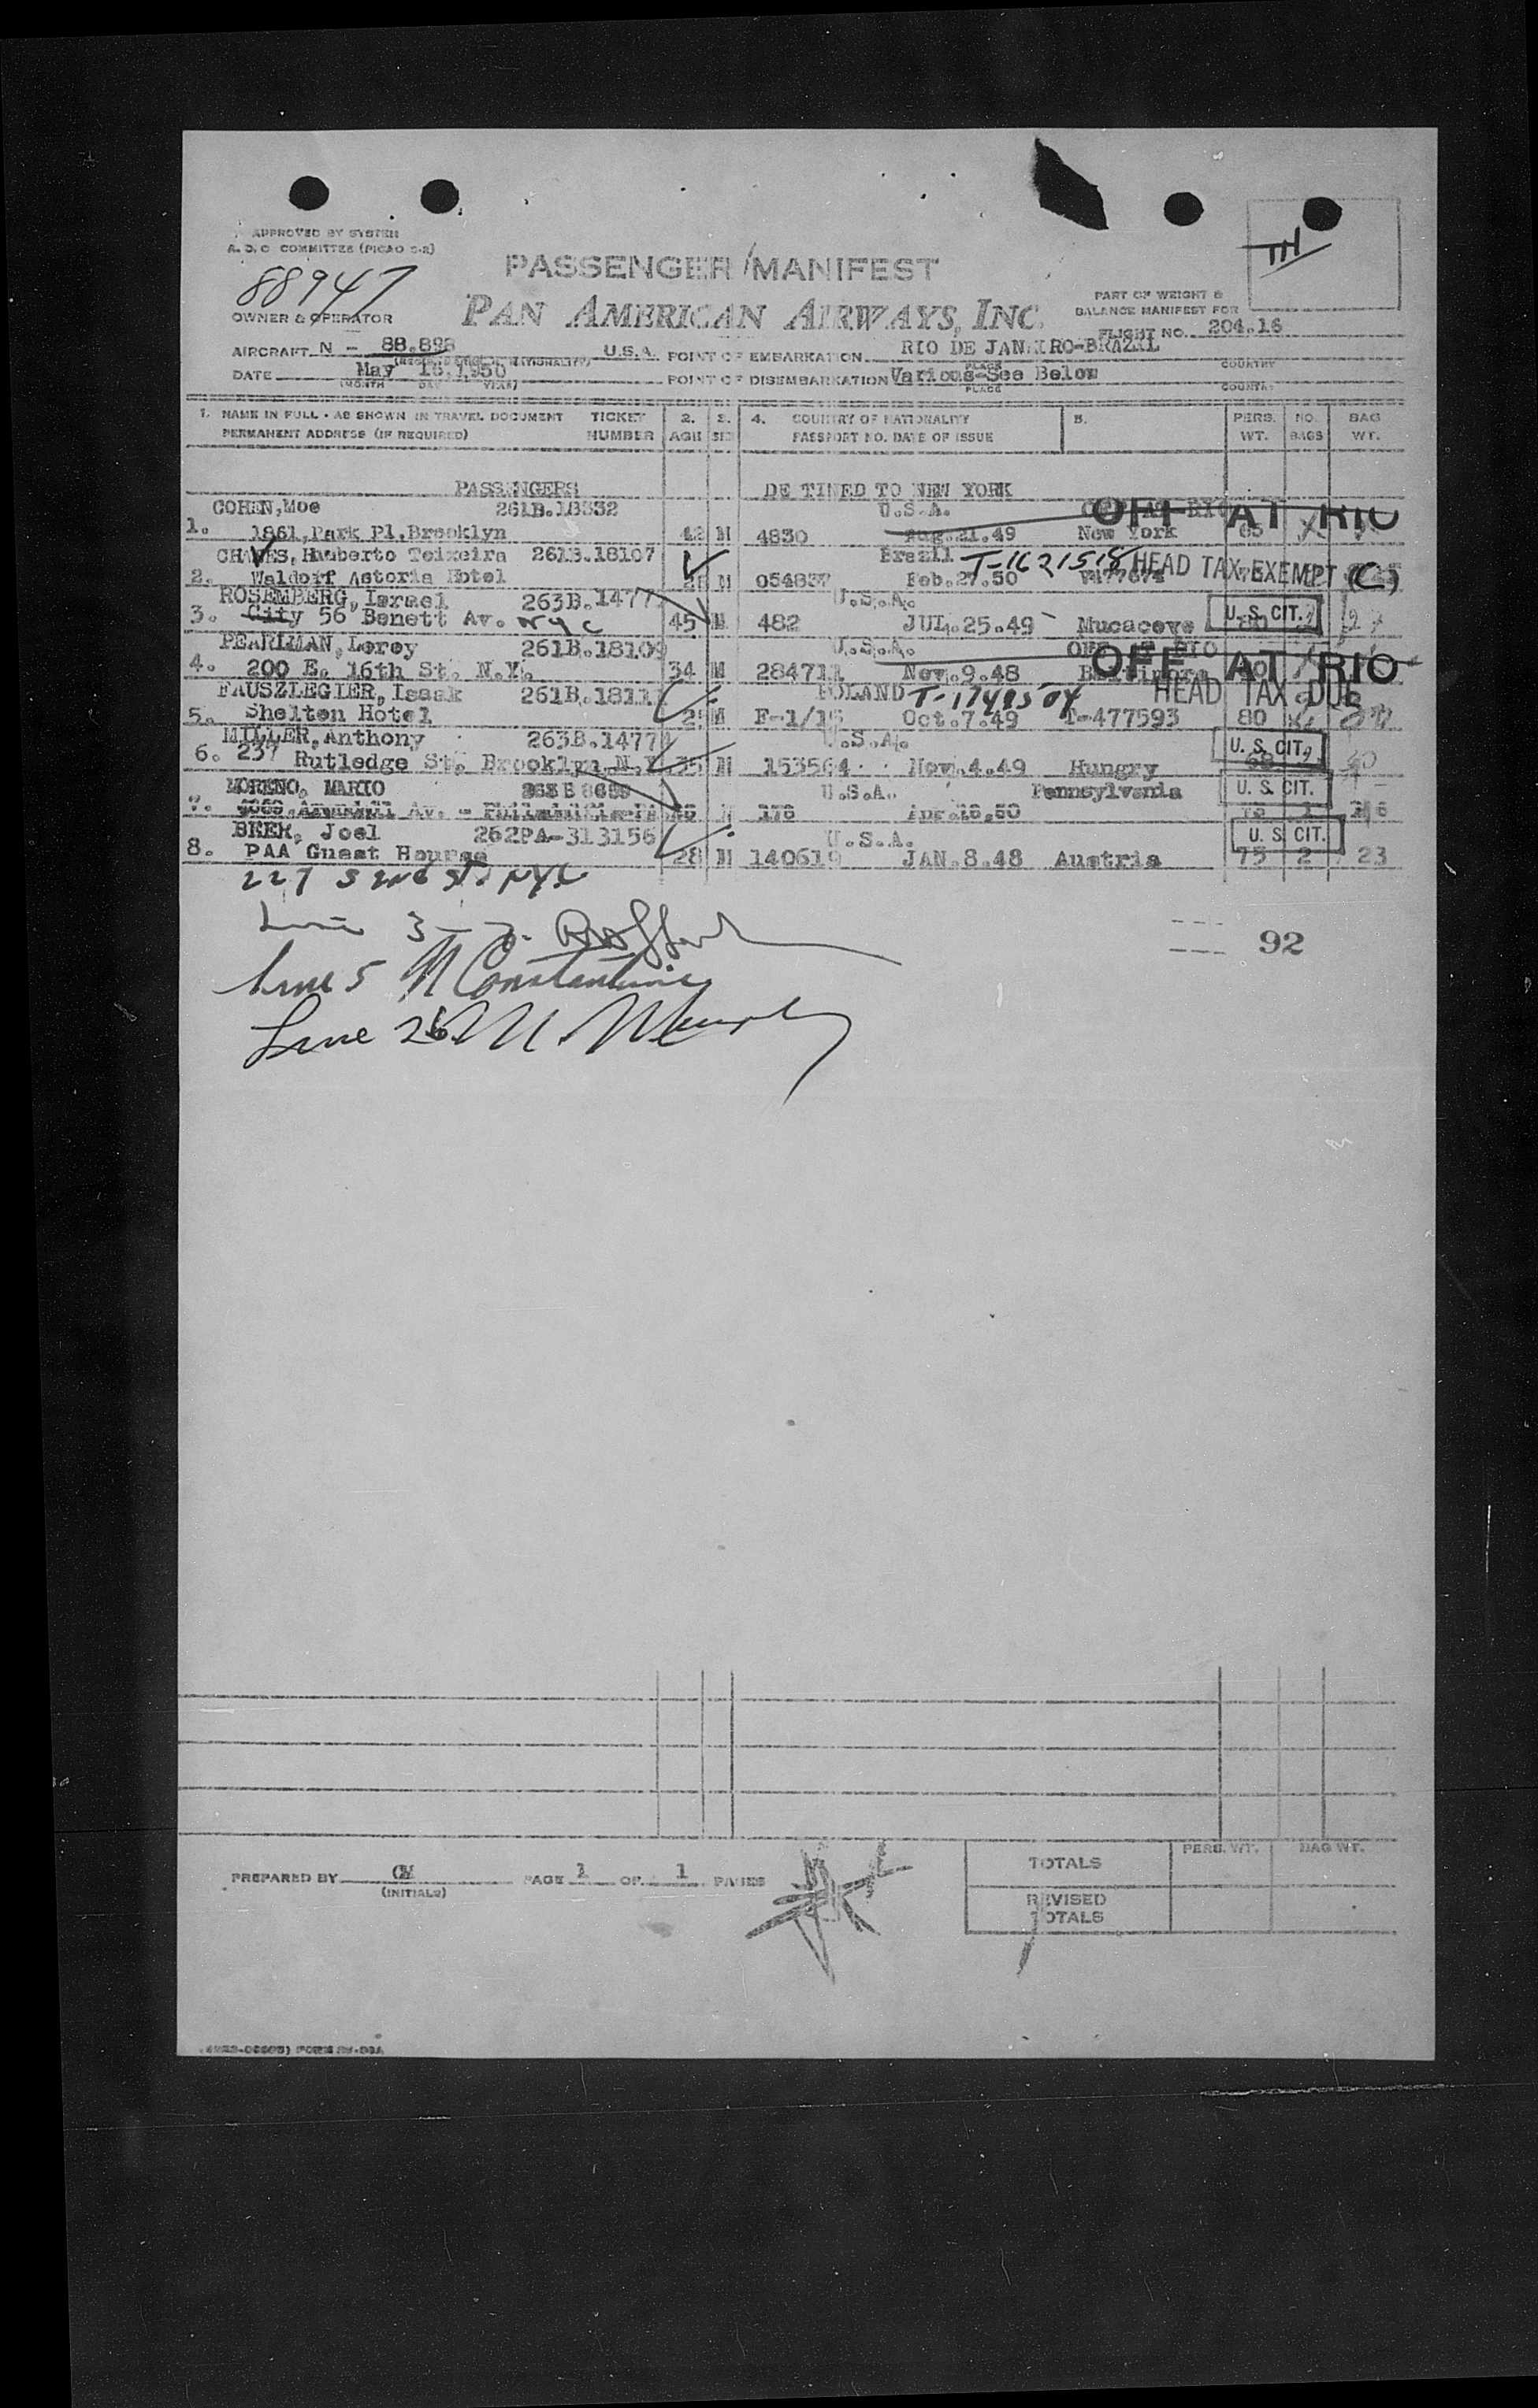 APPROVED BY SYSTEM
A. D. C COMMITTEE (PICAO C-2)
88947
PASSENGER MANIFEST
OWNER & OPERATOR
PAN AMERICAN AIRWAYS, INC.
PART OF WEIGHT &
BALANCE MANIFEST FOR
FLIGHT NO. 204.16
AIRCRAFT N - 88.898 U.S.A. POINT OF EMBARKATION RIO DE JANEIRO-BRAZIL
PLACE COUNTRY
DATE May 1950 POINT OF DISEMBARKATION Various-See Below
(MONTH DAY YEAR) PLACE COUNTRY
1. NAME IN FULL - AS SHOWN IN TRAVEL DOCUMENT TICKET 2. 3. 4. COUNTRY OF NATIONALITY 5. PERS. NO. BAG
PERMANENT ADDRESS (IF REQUIRED) NUMBER AGE SEX PASSPORT NO. DATE OF ISSUE WT. BAGS WT.
PASSENGERS DE TINED TO NEW YORK
COHEN,Moe 261B.18332 U.S.A. OFF AT RIO
1. 1861,Park Pl.Brooklyn 42 M 4830 Aug.21.49 New York 65
CHAVES, Humberto Teixeira 261B.18107 Brazil T-1621518 HEAD TAX EXEMPT (C)
2. Waldorf Astoria Hotel M Feb.27.50
ROSEMBERG, Israel 263B.1477 U.S.A.
3. City 56 Benett Av. NYC 45 M 482 JUL.25.49 Mucaceve U.S. CIT. 27
PEARLMAN, Leroy 261B.18109 U.S.A. OFF AT RIO
4. 200 E. 16th St. N.Y. 34 M 284711 Nov.9.48 Baltimore
FAUSZLEGIER, Isaak 261B.1811 POLAND T-1749504 HEAD TAX DUE
5. Shelton Hotel M F-1/15 Oct.7.49 T-477593 80
MILLER,Anthony 263B.1477 U.S.A.
6. 237 Rutledge St. Brooklyn N.Y. 35 M 153564 Nov.4.49 Hungry U. S. CIT.
MORENO, MARIO U.S.A. Pennsylvania U. S. CIT.
7. Av. - M 176 Apr.18.50
BEER, Joel 262PA-313156 U.S.A. U. S CIT.
8. PAA Guest Hourse 28 M 140619 JAN.8.48 Austria 75 2 23
227
Line 3-7
92
Line 5 M Constantine
Line 26 M. Murphy
PREPARED BY CM PAGE 1 OF 1 PAGES
(INITIALS)
PERS. WT. BAG WT.
TOTALS
REVISED
TOTALS